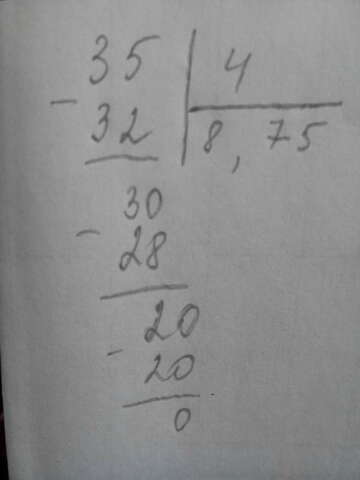 35 4
- 32 8,75
30
- 28
20
- 20
0